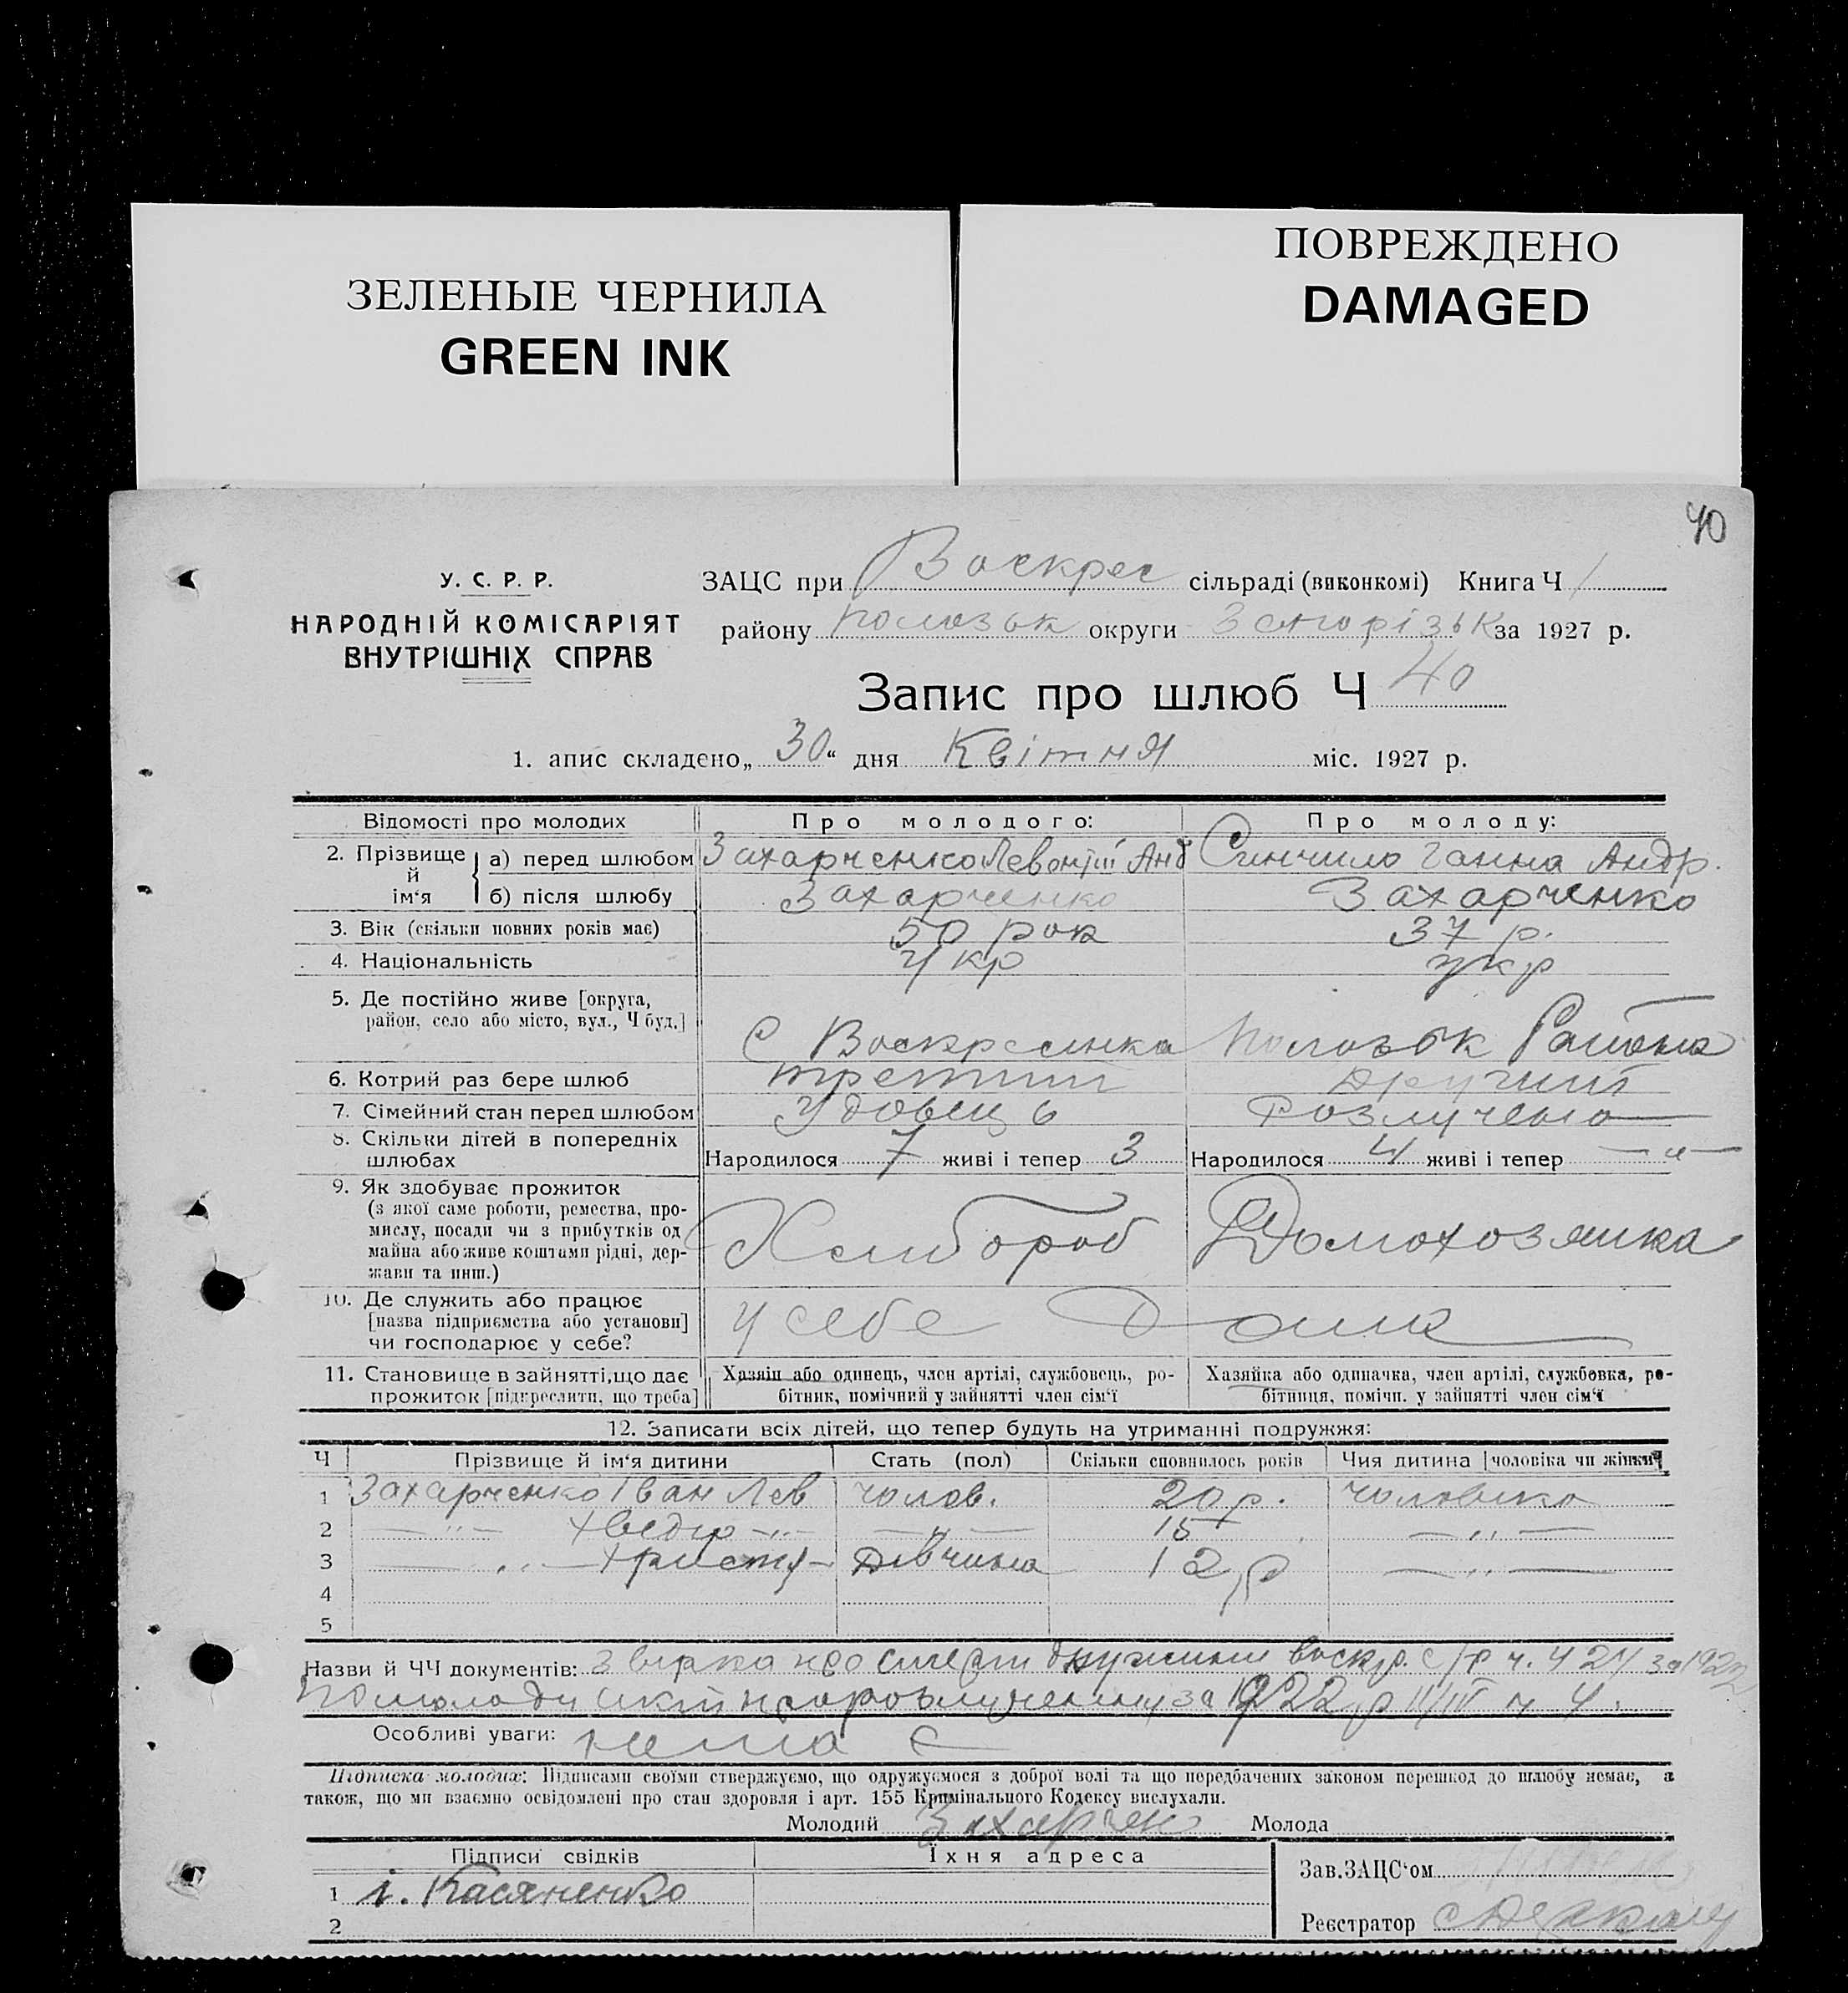 ЗЕЛЕНЫЕ ЧЕРНИЛА
GREEN INK
ПОВРЕЖДЕНО
DAMAGED
40
У. С. Р. Р.
НАРОДНІЙ КОМІСАРІЯТ
ВНУТРІШНІХ СПРАВ
ЗАЦС при Воскрес сільраді (виконкомі) Книга Ч 1
району Пологзьк округи Запорізьк за 1927 р.
Запис про шлюб Ч 40
1. апис складено „30“ дня Квітня міс. 1927 р.
Відомості про молодих Про молодого: Про молоду:
2. Прізвище й ім'я а) перед шлюбом Захарченко Левонтій Анд Синчило Ганна Андр.
б) після шлюбу Захарченко Захарченко
3. Вік (скільки повних років має) 50 рок 37 р.
4. Національність Укр укр
5. Де постійно живе [округа,
район, село або місто, вул., Ч буд.] С Воскресенка Района
6. Котрий раз бере шлюб третий другий
7. Сімейний стан перед шлюбом Удовець Розлучена
8. Скільки дітей в попередніх
шлюбах Народилося 7 живі і тепер 3 Народилося 4 живі і тепер — „ —
9. Як здобуває прожиток
(з якої саме роботи, ремества, про-
мислу, посади чи з прибутків од
майна або живе коштами рідні, дер-
жави та инш.) Хлибороб Домохозяйка
10. Де служить або працює
[назва підприємства або установи]
чи господарює у себе? у себе Дома
11. Становище в зайнятті, що дає
прожиток [підкреслити, що треба]
Хазяїн або одинець, член артілі, службовець, ро-
бітник, помічний у зайнятті член сім'ї
Хазяйка або одиначка, член артілі, службовка, ро-
бітниця, помічн. у зайнятті член сім'ї
12. Записати всіх дітей, що тепер будуть на утриманні подружжя:
Ч Прізвище й ім'я дитини Стать (пол) Скільки сповнилось років Чия дитина [чоловіка чи жінки]
1 Захарченко Іван Лев чолов. 20 р. чоловіка
2 — „ — Хведір — „ — — „ — 15 — „ —
3 — „ — Христя — Дівчина 12 р — „ —
4
5
Назви й ЧЧ документів: про смерти дружини воскр. с/р ч. 424 за
за 1922 р ч 4.
Особливі уваги: нема є
Підписка молодих: Підписами своїми стверджуємо, що одружуємося з доброї волі та що передбачених законом перешкод до шлюбу немає, а
також, що ми взаємно освідомлені про стан здоровля і арт. 155 Кримінального Кодексу вислухали.
Молодий Захарчен Молода
Підписи свідків Їхня адреса
1 і. Касяненко
2
Зав. ЗАЦС'ом
Реєстратор